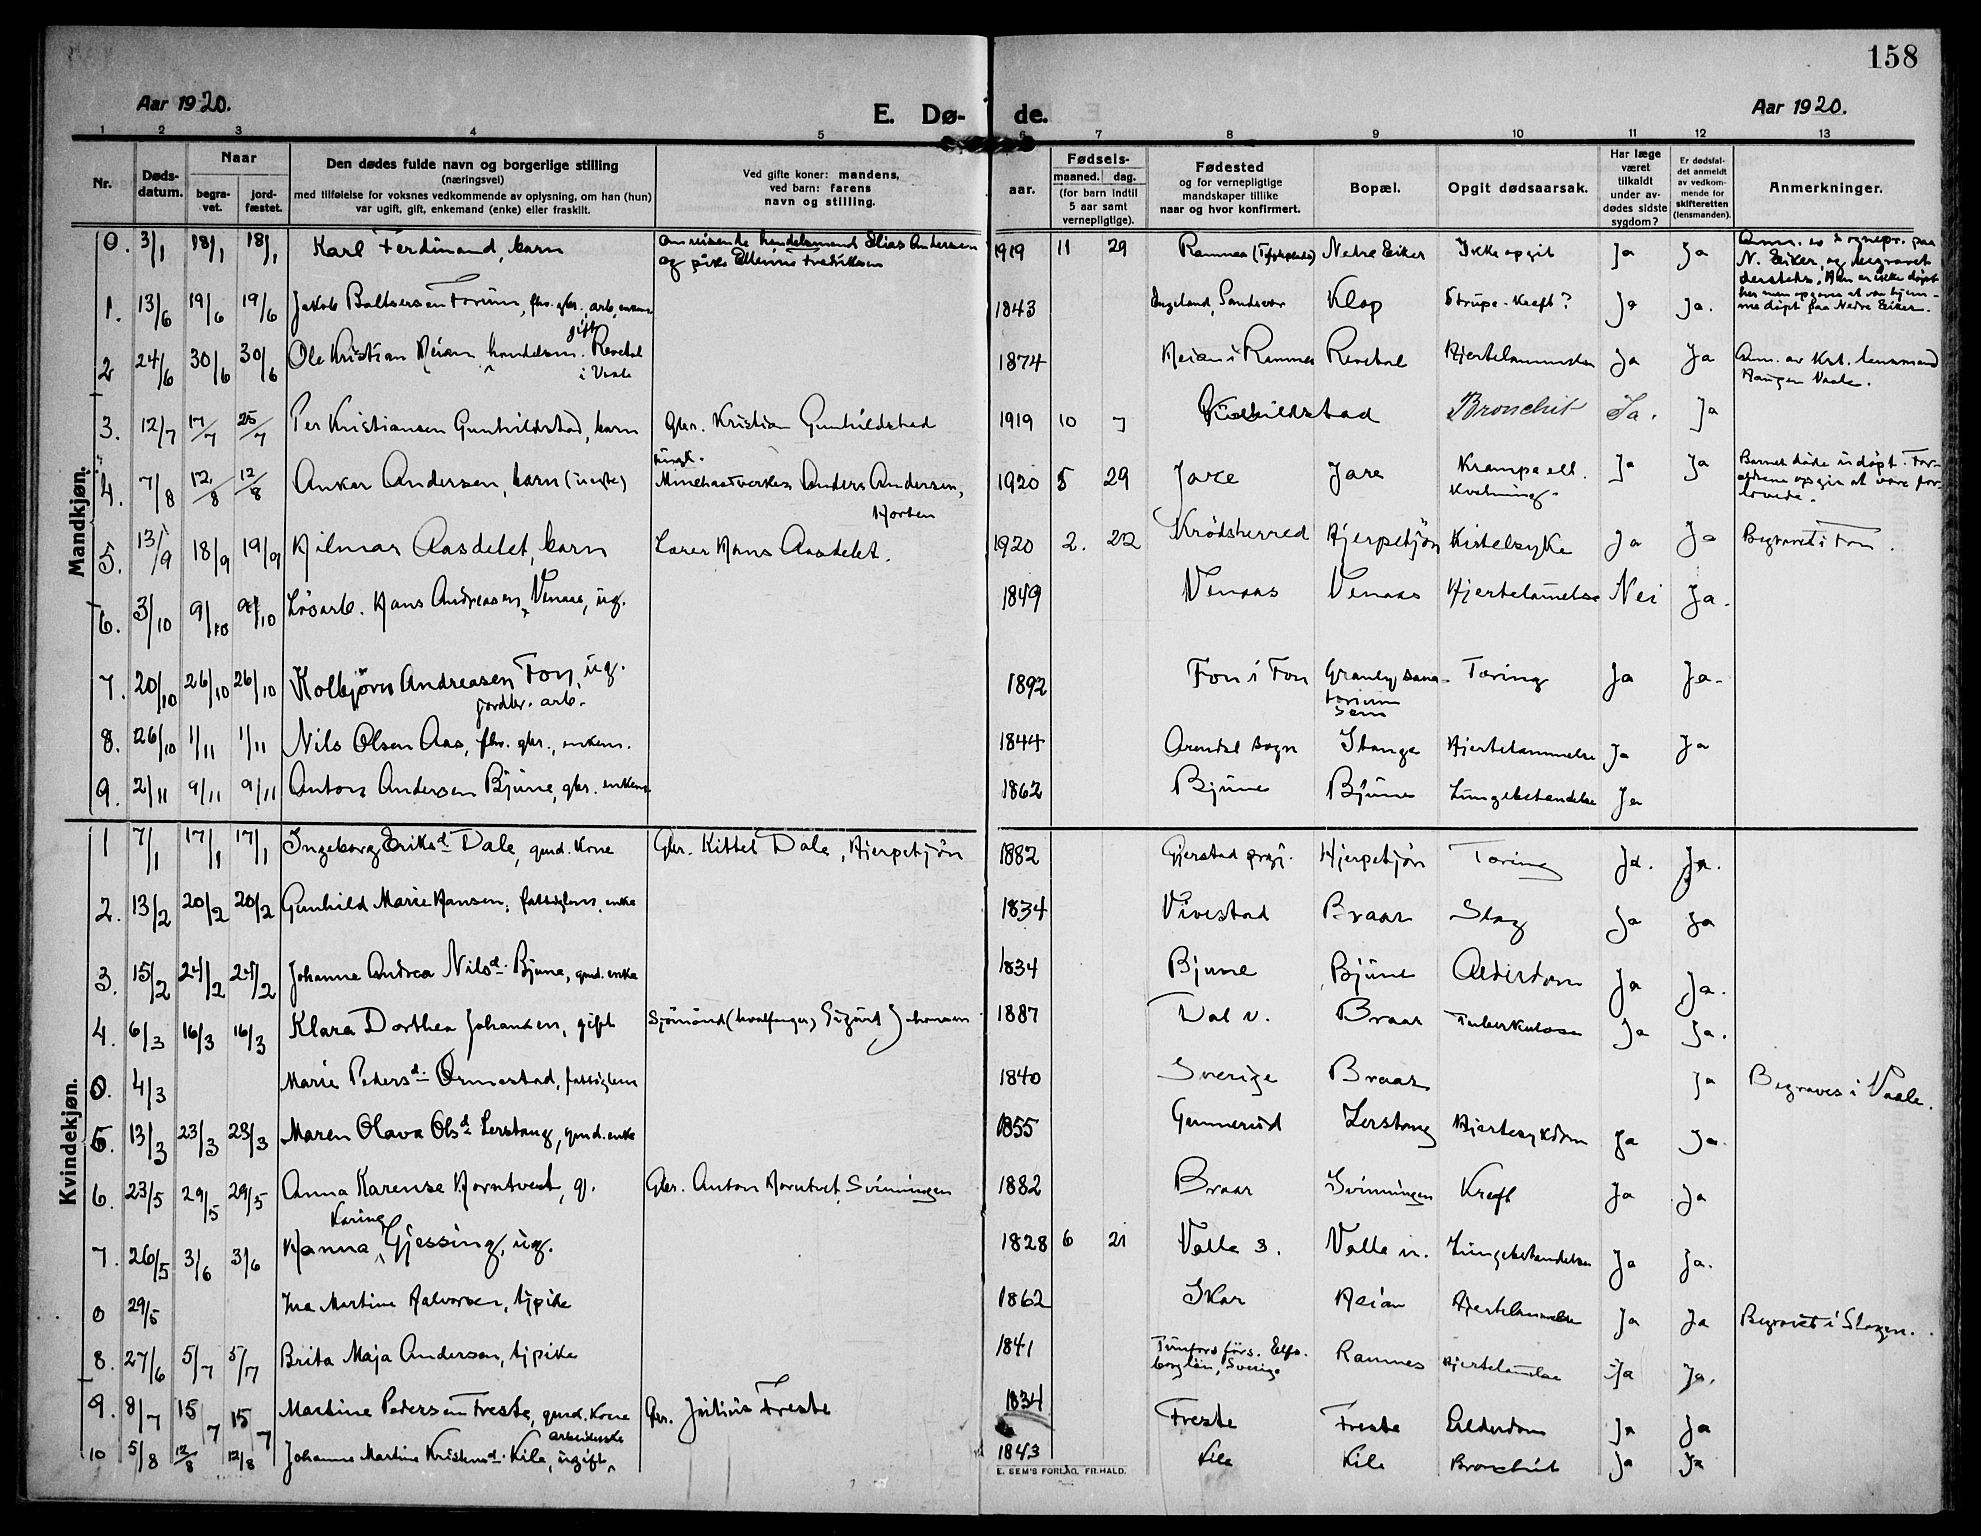 158
Aar 1920.
E. Dø-
de.
Aar 1920.
1 2 3 4 5 6 7 8 9 10 11 12 13
Nr.
Døds-
datum.
Naar
begra-
vet.
jord-
fæstet.
Den dødes fulde navn og borgerlige stilling
(næringsvei)
med tilføielse for voksnes vedkommende av oplysning, om han (hun)
var ugift, gift, enkemand (enke) eller fraskilt.
Ved gifte koner: mandens,
ved barn: farens
navn og stilling.
aar.
Fødsels-
maaned. dag.
(for barn indtil
5 aar samt
vernepligtige).
Fødested
og for vernepligtige
mandskaper tillike
naar og hvor konfirmert.
Bopæl.
Opgit dødsaarsak.
Har læge
været
tilkaldt
under av-
dødes sidste
sygdom?
Er dødsfal-
det anmeldt
av vedkom-
mende for
skifteretten
(lensmanden).
Anmerkninger.
Mandkjøn.
0. 3/1 18/1 18/1 Karl Ferdinand, barn omreisende handelsmand Elias Andersen 1919 11 29 Ramnes Nedre Eiker Ikke opgit Ja Ja
og pike Fredriksen
N. Eiker, og begravet
1. 13/6 19/6 19/6 Jakob Baltsersen Forum, fhv. gbr., arb, enkem. 1843 Klop Strupe-Kreft? Ja Ja.
gift
2 24/6 30/6 30/6 Ole Kristian Heian, handelsm. Revetal 1874 Heian i Ramnes Revetal Hjertelammelse Ja Ja Anm. av Kst. lensmand
i Vaale
Haugen Vaale.
3. 12/7 17/7 25/7 Per Kristiansen Gunhildstad, barn Gbr. Kristian Gunhildstad 1919 10 7 Bronchit Ja. Ja
ungk.
4. 7/8 12/8 12/8 Ankar Andersen, barn (uegte) Anders Andersen, 1920 5 29 Jare Jare Krampe ell. Ja Ja Barnet døde udøpt. For-
Horten
Kvelning.
ældrene opgir at være for-
lovede.
5. 13/9 18/9 19/9 Hilmar Aasdelet, barn Lærer Hans Aasdelet. 1920 2. 22 Krødsherred Hjerpetjøn Kirtelsyke Ja Ja Begravet i Fon.
6. 3/10 9/10 9/10 Løsarb. Hans Andreasen, Venaas, ug. 1849 Venaas Venaas Hjertelamelse Nei Ja.
7. 20/10 26/10 26/10 Kolbjørn Andreasen Fon, ug. 1892 Fon i Fon Granly sana- Tæring Ja Ja.
jordbr. arb.
torium
Sem
8. 26/10 1/11 1/11 Nils Olsen Aas, fhv. gbr., enkem. 1844 Arendal sogn Stange Hjertelammelse Ja Ja
9. 2/11 9/11 9/11 Anton Andersen Bjune, gbr. enkem. 1862 Bjune Bjune Lungebetændelse Ja
Kvindekjøn.
1 7/1 17/1 17/1 Ingeborg Eriksd. Dale, gmd. kone Gbr. Kittel Dale, Hjerpetjøn 1882 Gjerstad prgj. Hjerpetjøn Tæring Ja. Ja.
2. 13/2 20/2 20/2 Gunhild Marie Hansen, fattiglem, enke 1834 Vivestad Braar Slag Ja Ja
3. 15/2 24/2 24/2 Johanne Andrea Nilsd. Bjune, gmd. enke 1834 Bjune Bjune Alderdom Ja Ja.
4. 6/3 16/3 16/3 Klara Dorthea Johansen, gift Sjømand (hvalfanger) Sigurd Johansen 1887 Dal n. Braar Tuberkulose Ja Ja.
0. 4/3 Marie Pedersd. Ormestad, fattiglem 1840 Sverige Braar Ja Begraves i Vaale.
5. 13/3 23/3 23/3 Maren Olava Olsd. Lerstang, gmd. enke 1855 Gunnerud Lerstang Hjertesykdom Ja Ja.
6. 23/5 29/5 29/5 Anna Karense Horntvedt, g. Gbr. Anton Horntvet, Svinningen 1882 Braar Svinningen Kreft Ja Ja
Karing
7. 26/5 3/6 3/6 Hanna Gjessing, ug. 1828 6 21 Valle s. Valle n. Lungebetændelse Ja Ja.
0 29/5 Ina Martine Halvorsen, tjpike 1862 Skar Heian Hjertelammelse Ja Ja Begravet i Slagen.
8. 27/6 5/7 5/7 Brita Maja Anderson, tjpike 1841 Elfs- Ramnes Hjertelamelse Ja Ja.
borg län, Sverige
9. 8/7 15/7 15/7 Martine Pedersen Freste, gmd. kone Gbr. Julius Freste 1834 Freste Freste Alderdom Ja Ja
arbeiderske
10 5/8 12/8 12/8 Johanne Martine Kristensd. Kile, ugift, 1843 Kile Kile Bronchit Ja Ja
E. SEM'S FORLAG, FR.HALD.